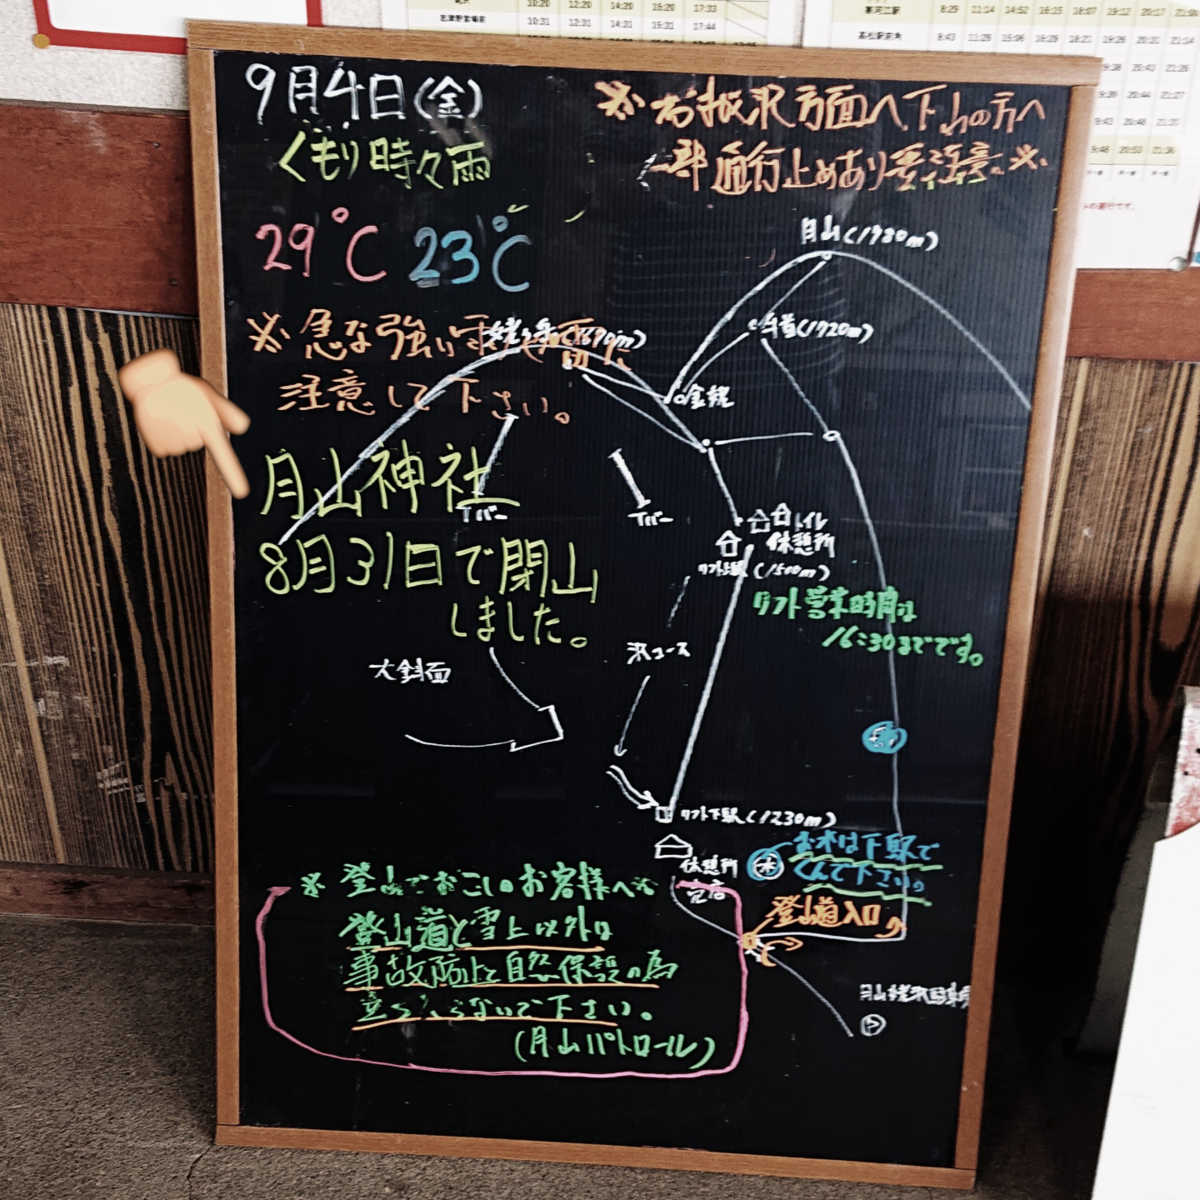 9月4日(金)
くもり時々雨
29℃ 23℃
※急な強い雷雨に
注意して下さい。
月山神社
8月31日で閉山
しました。
※岩根沢方面へ下山の方へ
一部通行止めあり要注意。※
月山(1980m)
姥ヶ岳(1670m)
牛首(1720m)
金姥
Tバー
Tバー
トイレ
休憩所
リフト上駅(1500m)
リフト営業時間は
16:30までです。
沢コース
大斜面
リフト下駅(1230m)
休憩所
売店
水
お水は下駅で
くんで下さい。
登山道入口
P
※登山でおこしのお客様へ※
登山道と雪上以外は
事故防止と自然保護の為
立ち入らないで下さい。
(月山パトロール)